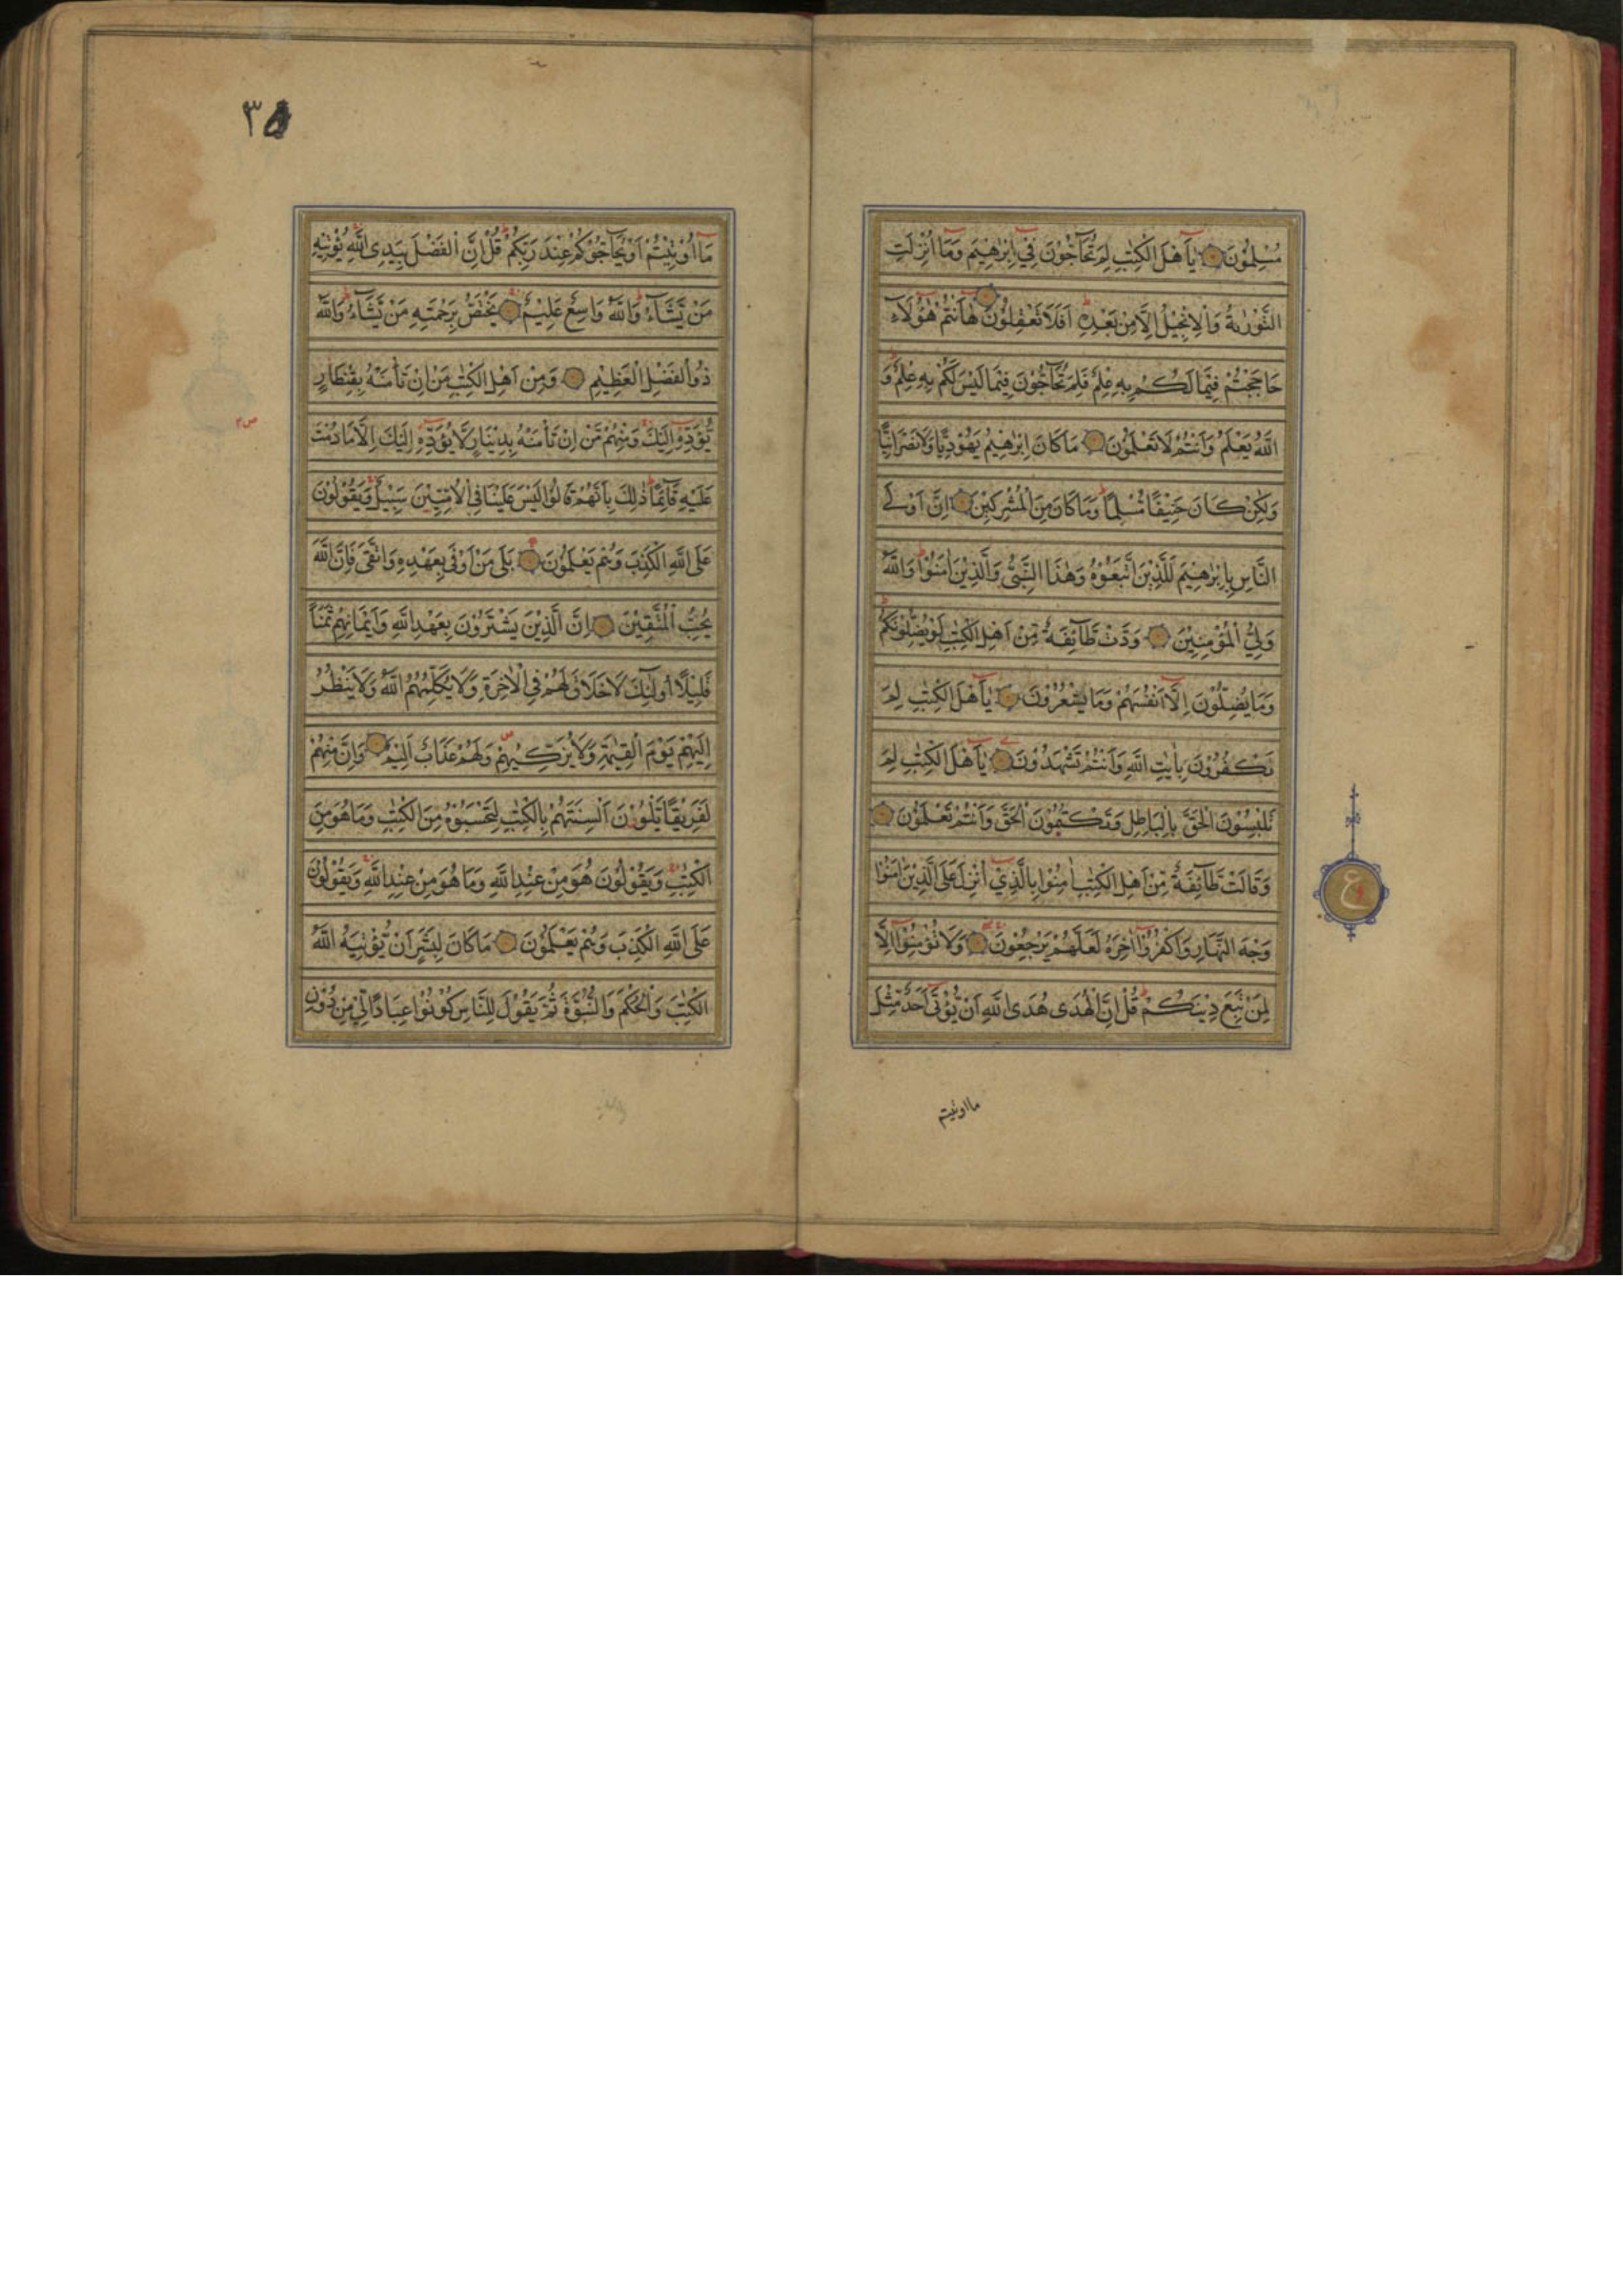 مُسْلِمُوْنَ يٰٓاَهْلَ الْكِتٰبِ لِمَ تُحَآجُّوْنَ فِيْٓ اِبْرٰهِيْمَ وَمَآ اُنْزِلَتِ
التَّوْرٰىةُ وَالْاِنْجِيْلُ اِلَّا مِنْۢ بَعْدِهٖ اَفَلَا تَعْقِلُوْنَ هٰٓاَنْتُمْ هٰٓؤُلَآءِ
حَاجَجْتُمْ فِيْمَا لَكُمْ بِهٖ عِلْمٌ فَلِمَ تُحَآجُّوْنَ فِيْمَا لَيْسَ لَكُمْ بِهٖ عِلْمٌ وَ
اللّٰهُ يَعْلَمُ وَاَنْتُمْ لَا تَعْلَمُوْنَ مَا كَانَ اِبْرٰهِيْمُ يَهُوْدِيًّا وَّلَا نَصْرَانِيًّا
وَلٰكِنْ كَانَ حَنِيْفًا مُّسْلِمًا وَمَا كَانَ مِنَ الْمُشْرِكِيْنَ اِنَّ اَوْلَى
النَّاسِ بِاِبْرٰهِيْمَ لَلَّذِيْنَ اتَّبَعُوْهُ وَهٰذَا النَّبِىُّ وَالَّذِيْنَ اٰمَنُوْا وَاللّٰهُ
وَلِىُّ الْمُؤْمِنِيْنَ وَدَّتْ طَّآئِفَةٌ مِّنْ اَهْلِ الْكِتٰبِ لَوْ يُضِلُّوْنَكُمْ
وَمَا يُضِلُّوْنَ اِلَّآ اَنْفُسَهُمْ وَمَا يَشْعُرُوْنَ يٰٓاَهْلَ الْكِتٰبِ لِمَ
تَكْفُرُوْنَ بِاٰيٰتِ اللّٰهِ وَاَنْتُمْ تَشْهَدُوْنَ يٰٓاَهْلَ الْكِتٰبِ لِمَ
تَلْبِسُوْنَ الْحَقَّ بِالْبَاطِلِ وَتَكْتُمُوْنَ الْحَقَّ وَاَنْتُمْ تَعْلَمُوْنَ
وَقَالَتْ طَّآئِفَةٌ مِّنْ اَهْلِ الْكِتٰبِ اٰمِنُوْا بِالَّذِيْٓ اُنْزِلَ عَلَى الَّذِيْنَ اٰمَنُوْا
وَجْهَ النَّهَارِ وَاكْفُرُوْٓا اٰخِرَهٗ لَعَلَّهُمْ يَرْجِعُوْنَ وَلَا تُؤْمِنُوْٓا اِلَّا
لِمَنْ تَبِعَ دِيْنَكُمْ قُلْ اِنَّ الْهُدٰى هُدَى اللّٰهِ اَنْ يُّؤْتٰٓى اَحَدٌ مِّثْلَ
ما اوتيتم
ع
مَآ اُوْتِيْتُمْ اَوْ يُحَآجُّوْكُمْ عِنْدَ رَبِّكُمْ قُلْ اِنَّ الْفَضْلَ بِيَدِ اللّٰهِ يُؤْتِيْهِ
مَنْ يَّشَآءُ وَاللّٰهُ وَاسِعٌ عَلِيْمٌ يَخْتَصُّ بِرَحْمَتِهٖ مَنْ يَّشَآءُ وَاللّٰهُ
ذُو الْفَضْلِ الْعَظِيْمِ وَمِنْ اَهْلِ الْكِتٰبِ مَنْ اِنْ تَأْمَنْهُ بِقِنْطَارٍ
يُّؤَدِّهٖٓ اِلَيْكَ وَمِنْهُمْ مَّنْ اِنْ تَأْمَنْهُ بِدِيْنَارٍ لَّا يُؤَدِّهٖٓ اِلَيْكَ اِلَّا مَا دُمْتَ
عَلَيْهِ قَآئِمًا ذٰلِكَ بِاَنَّهُمْ قَالُوْا لَيْسَ عَلَيْنَا فِى الْاُمِّيّٖنَ سَبِيْلٌ وَيَقُوْلُوْنَ
عَلَى اللّٰهِ الْكَذِبَ وَهُمْ يَعْلَمُوْنَ بَلٰى مَنْ اَوْفٰى بِعَهْدِهٖ وَاتَّقٰى فَاِنَّ اللّٰهَ
يُحِبُّ الْمُتَّقِيْنَ اِنَّ الَّذِيْنَ يَشْتَرُوْنَ بِعَهْدِ اللّٰهِ وَاَيْمَانِهِمْ ثَمَنًا
قَلِيْلًا اُولٰٓئِكَ لَا خَلَاقَ لَهُمْ فِى الْاٰخِرَةِ وَلَا يُكَلِّمُهُمُ اللّٰهُ وَلَا يَنْظُرُ
اِلَيْهِمْ يَوْمَ الْقِيٰمَةِ وَلَا يُزَكِّيْهِمْ وَلَهُمْ عَذَابٌ اَلِيْمٌ وَاِنَّ مِنْهُمْ
لَفَرِيْقًا يَّلْوٗنَ اَلْسِنَتَهُمْ بِالْكِتٰبِ لِتَحْسَبُوْهُ مِنَ الْكِتٰبِ وَمَا هُوَ مِنَ
الْكِتٰبِ وَيَقُوْلُوْنَ هُوَ مِنْ عِنْدِ اللّٰهِ وَمَا هُوَ مِنْ عِنْدِ اللّٰهِ وَيَقُوْلُوْنَ
عَلَى اللّٰهِ الْكَذِبَ وَهُمْ يَعْلَمُوْنَ مَا كَانَ لِبَشَرٍ اَنْ يُّؤْتِيَهُ اللّٰهُ
الْكِتٰبَ وَالْحُكْمَ وَالنُّبُوَّةَ ثُمَّ يَقُوْلَ لِلنَّاسِ كُوْنُوْا عِبَادًا لِّىْ مِنْ دُوْنِ